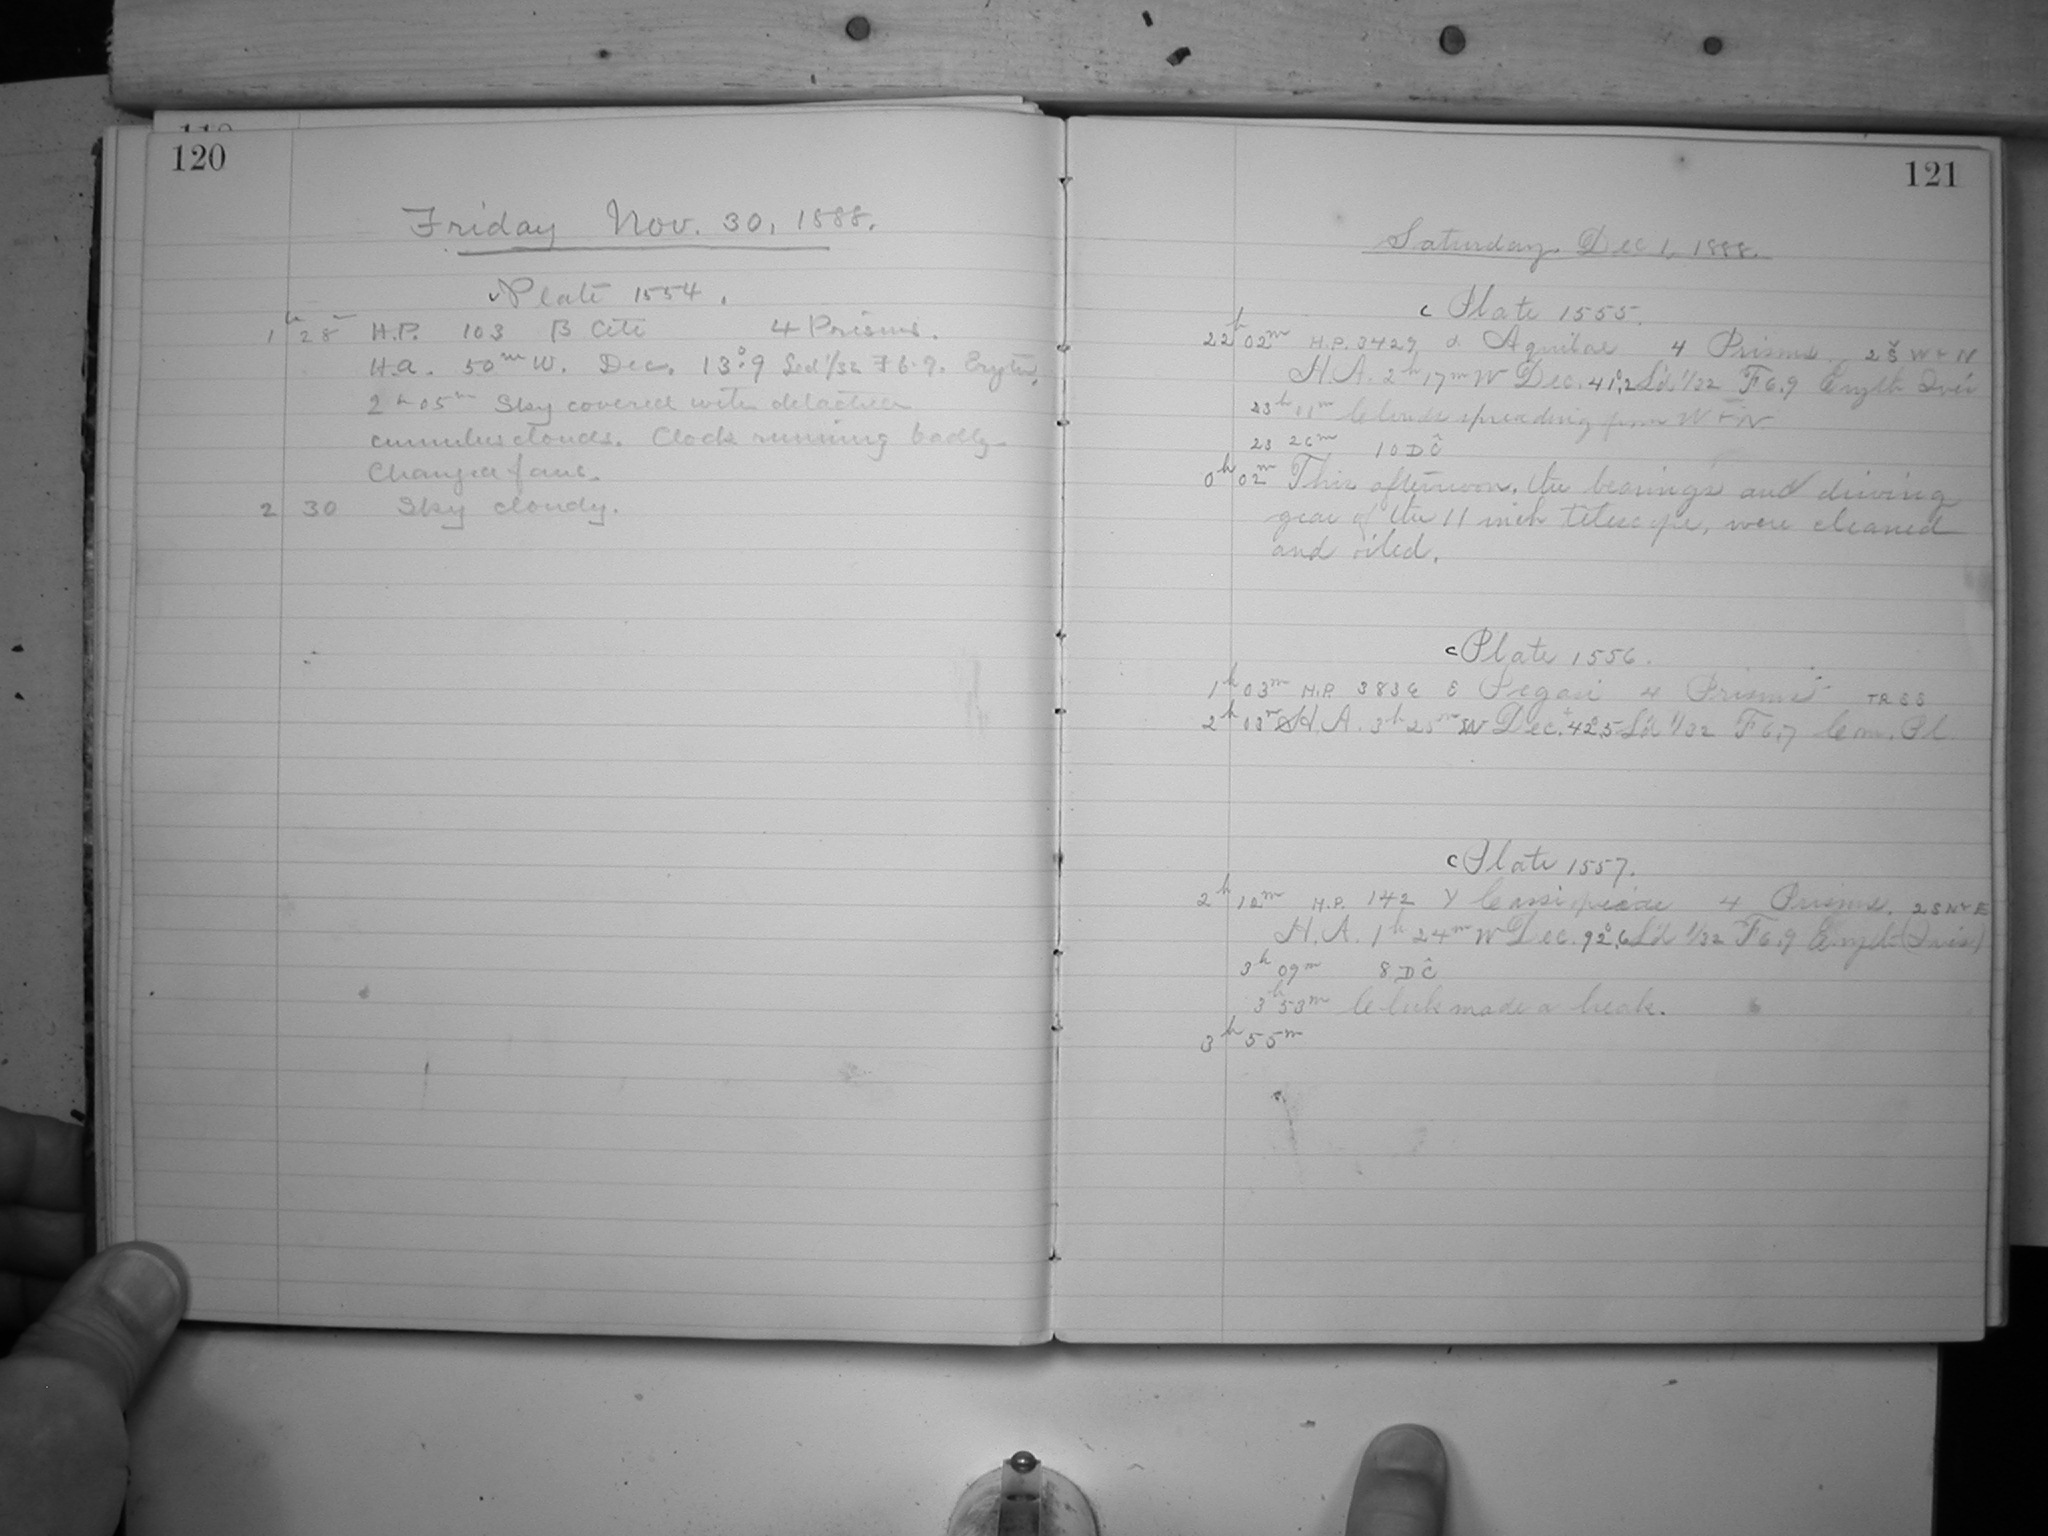 120
Friday Nov. 30, 1888.
Plate 1554.
1h 28m H.P. 103 β Ceti 4 Prisms.
H.A. 50m W. Dec. 13°.9 Sed 1/32 F 6.9. Eryth.
2h 05m Sky covered with detached
cumulus clouds. Clock running badly
Changed fans.
2 30 Sky cloudy.
121
Saturday Dec 1, 1888.
c Plate 1555.
22h 02m H.P. 3429 α Aquilae 4 Prisms. W + N
H.A. 2h 17m W Dec. 41°.2 L'd 1/32 F 6.9 Eryth
23h 11m Clouds spreading from W + N
23 26m 10 D C
0h 02m This afternoon, the bearings and driving
gear of the 11 inch telescope, were cleaned
and oiled.
c Plate 1556.
1h 03m H.P. 3836 ε Pegasi 4 Prisms TR S S
2h 03m H.A. 3h 25m W Dec. + 42°.5 L'd 1/32 F 6.7 Com. Pl.
c Plate 1557.
2h 12m H.P. 142 γ Cassiopeiae 4 Prisms. 2 S N + E
H.A. 1h 24m W Dec. 92°.6 L'd 1/32 F 6.9 Eryth
3h 09m 8 D C
3h 53m Clock made a break.
3h 55m